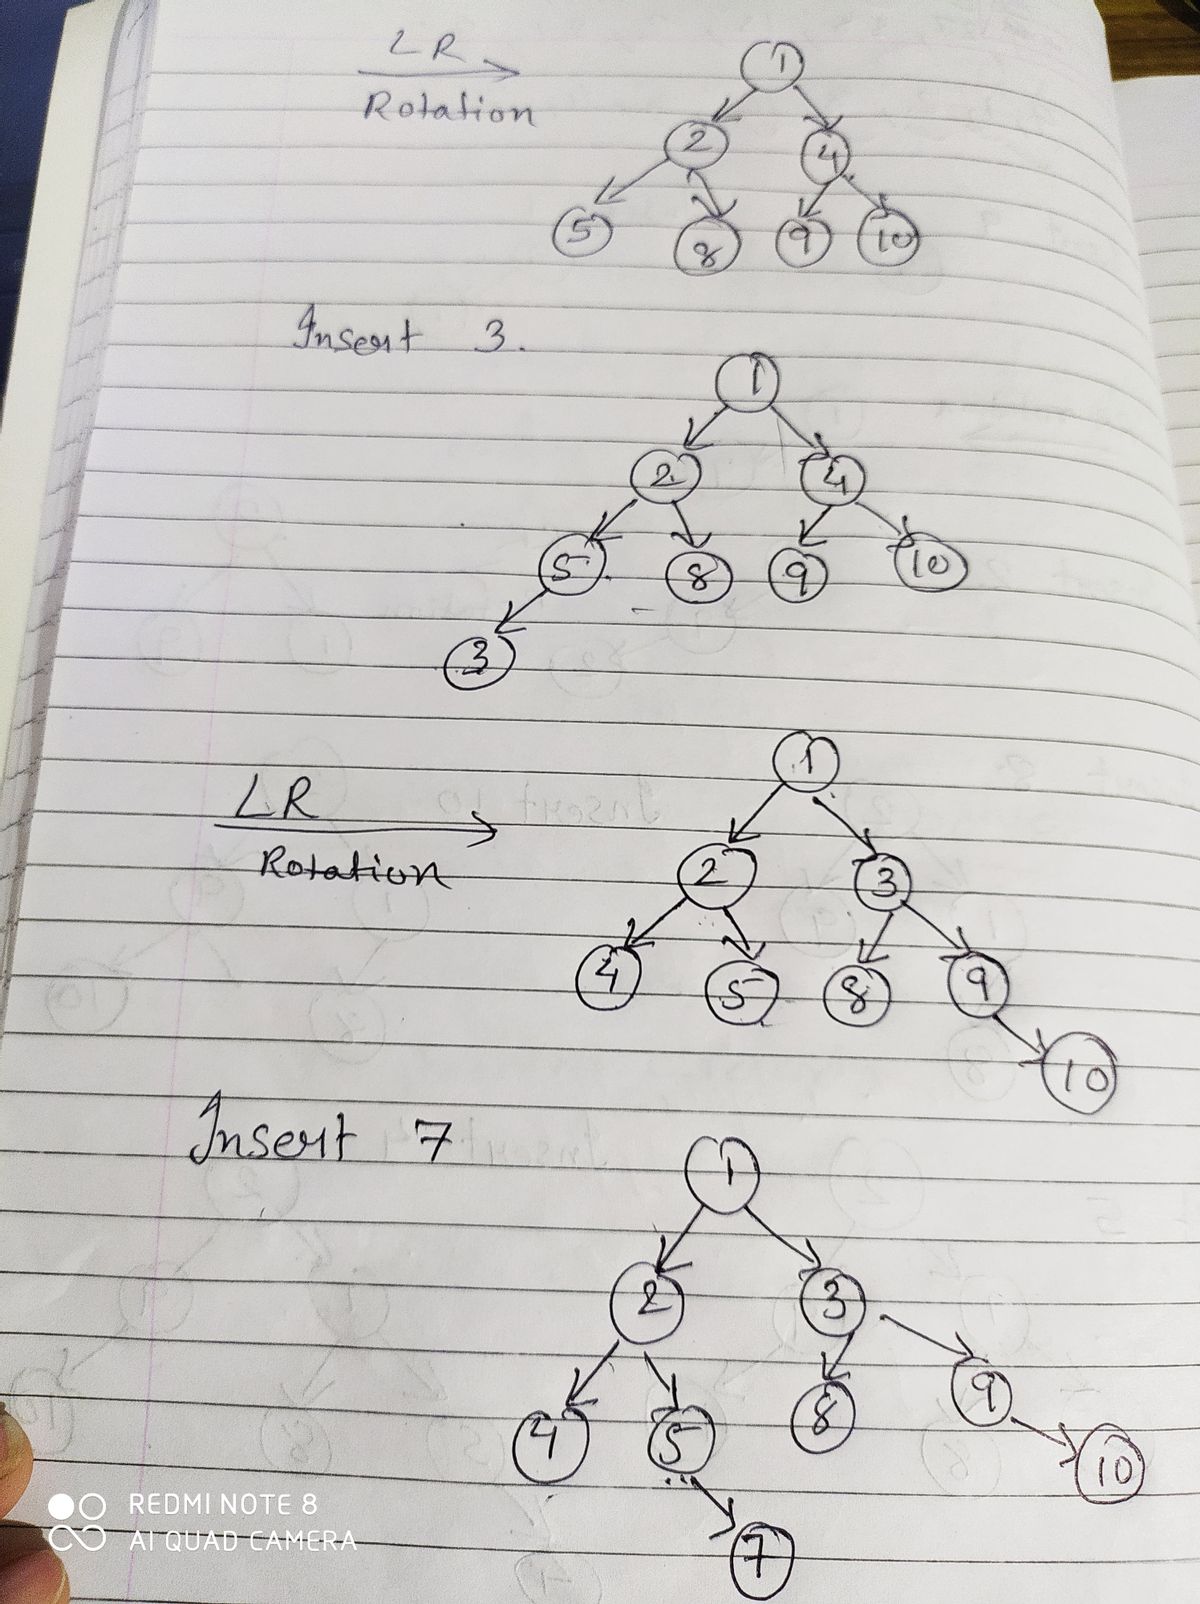 LR
Rotation
1
2 4
5 8 9 10
Insert 3.
1
2 4
5 8 9 10
3
LR
Rotation
1
2 3
4 5 8 9
10
Insert 7
1
2 3
4 5 8 9
10
7
REDMI NOTE 8
AI QUAD CAMERA